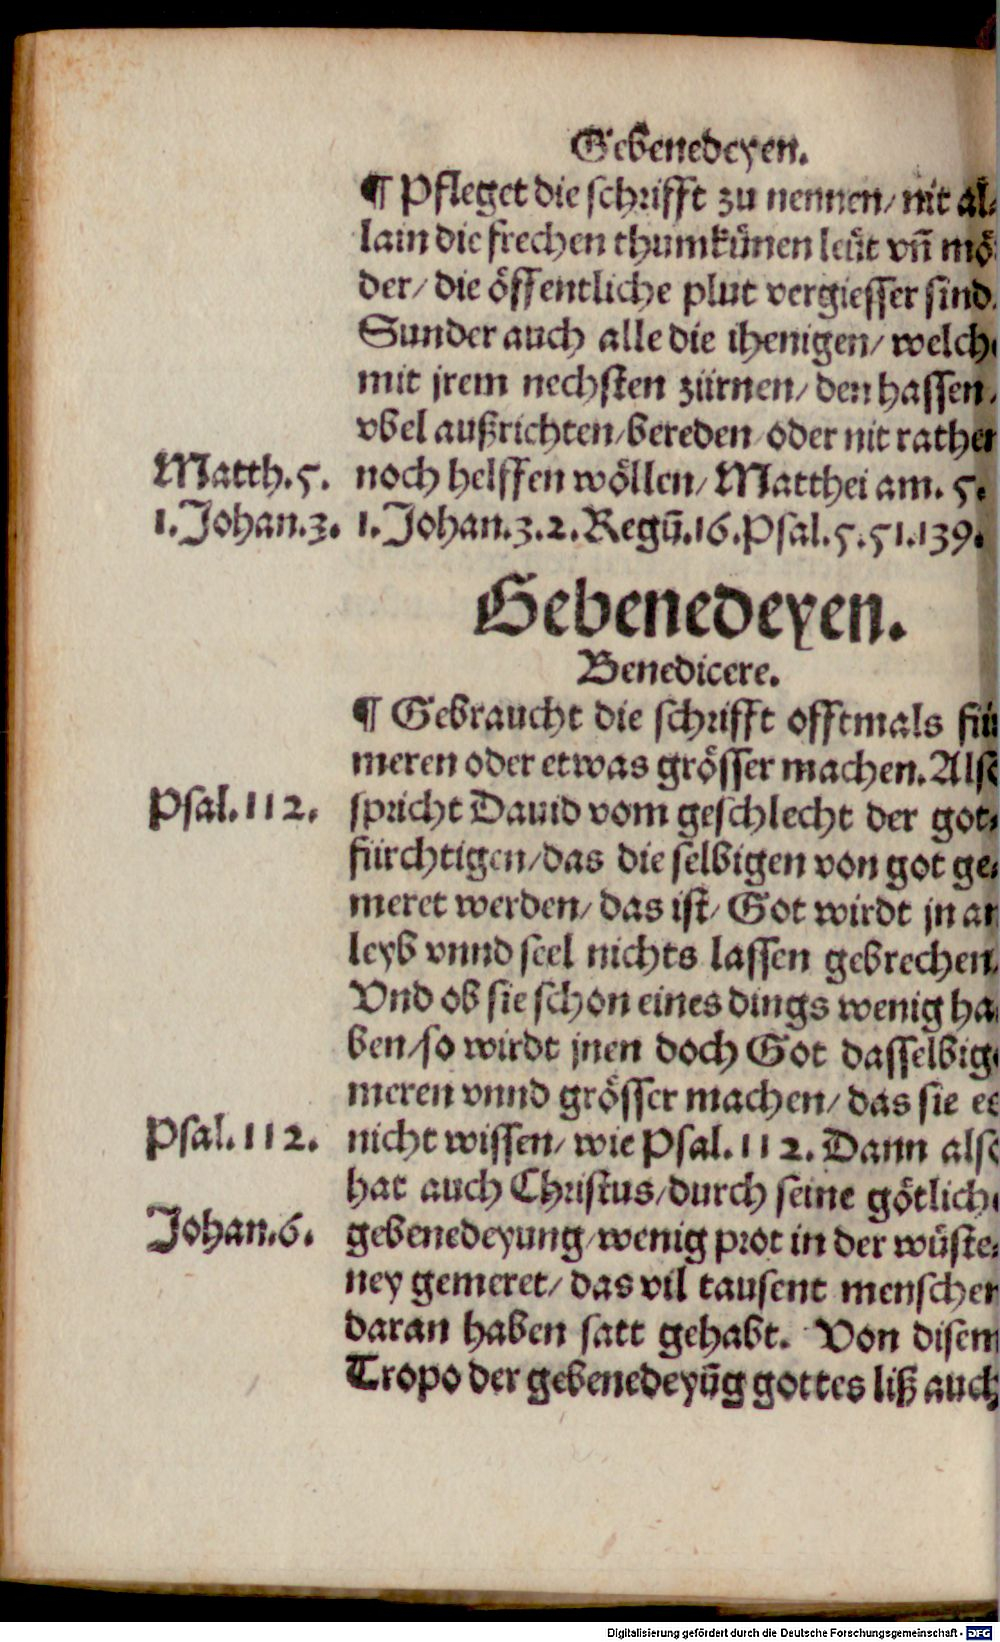 Gebenedeyen.
¶ Pfleget die schrifft zu nennen/ nit al⸗
lain die frechen thumkünen leüt vñ mö
der/ die öffentliche plut vergiesser sind.
Sunder auch alle die ihenigen/ welch
mit jrem nechsten zürnen/ den hassen/
vbel außrichten/ bereden/ oder nit rathen
Matth.5. noch helffen wöllen/ Matthei am. 5.
1.Johan.3. 1.Johan.3.2.Regū.16.Psal.5.51.139.
Gebenedeyen.
Benedicere.
¶ Gebraucht die schrifft offtmals für
meren oder etwas grösser machen. Also
Psal.112. spricht Dauid vom geschlecht der got⸗
fürchtigen/ das die selbigen von got ge⸗
meret werden/ das ist/ Got wirdt jn an
leyb vnnd seel nichts lassen gebrechen.
Vnd ob sie schon eines dings wenig ha⸗
ben/ so wirdt jnen doch Got dasselbig
meren vnnd grösser machen/ das sie es
Psal.112. nicht wissen/ wie Psal.112. Dann also
hat auch Christus/ durch seine götlich
Johan.6. gebenedeyung/ wenig prot in der wüste⸗
ney gemeret/ das vil tausent menschen
daran haben satt gehabt. Von disem
Tropo der gebenedeyūg gottes liß auch
Digitalisierung gefördert durch die Deutsche Forschungsgemeinschaft - DFG